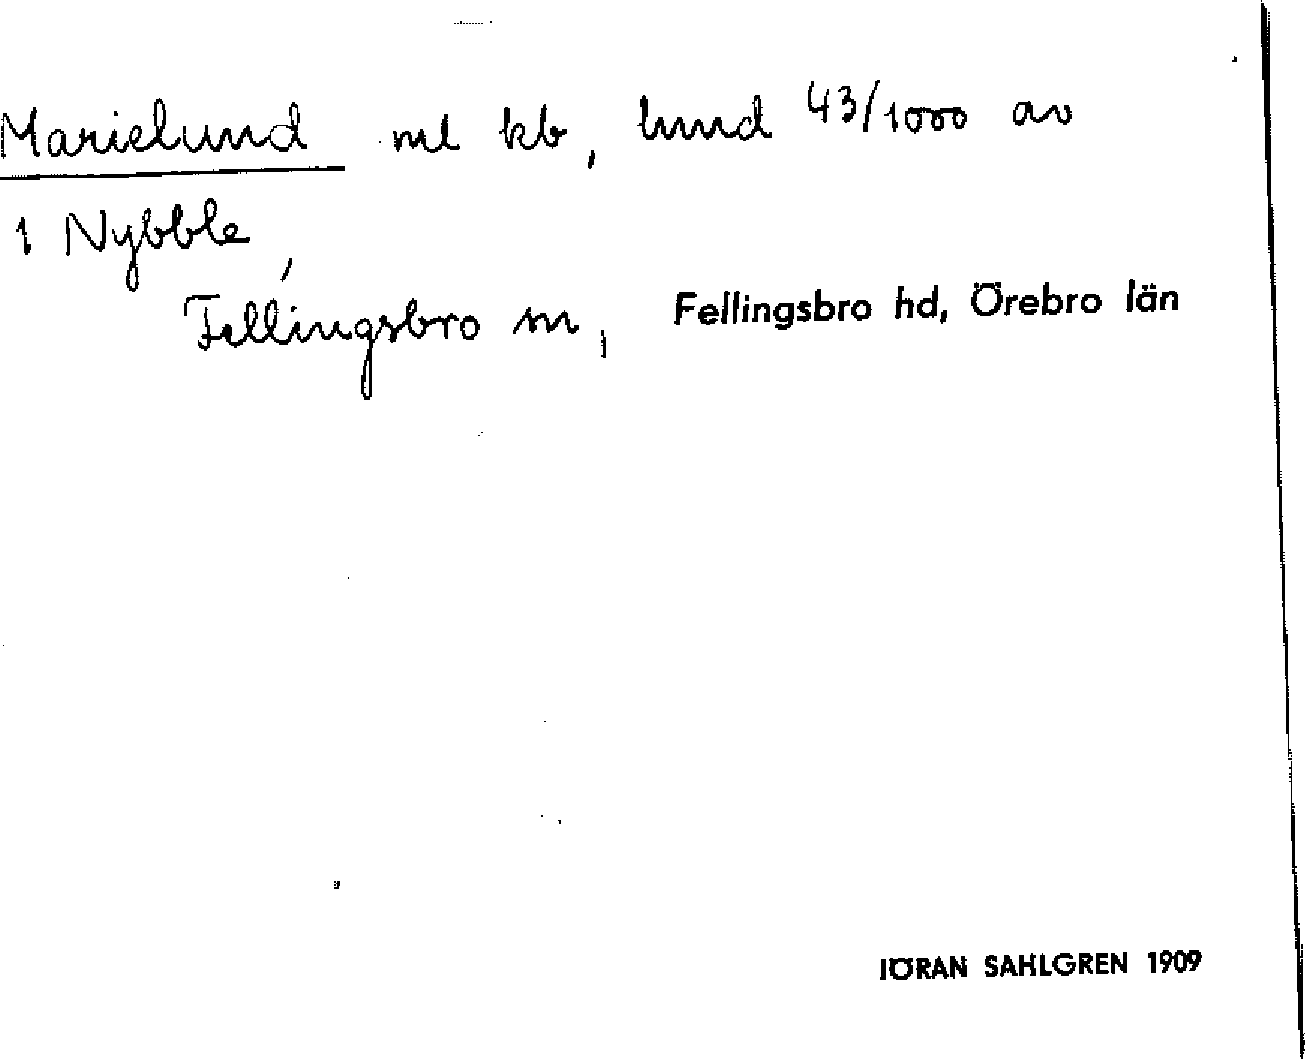 Marielund ml kb, lmd 43/1000 av
1 Nybble,
Fellingsbro sn, Fellingsbro hd, Örebro län
JÖRAN SAHLGREN 1909